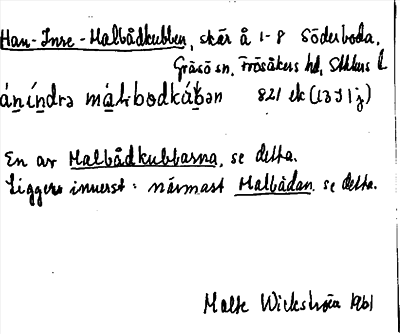 Han-Inre-Malbådkubben, skär å 1-8 Söderboda,
Gräsö sn, Frösåkers hd, Sthlms l.
áníndrə málbodkábən 821 ek (13 I 1 j)
En av Malbådkubbarna, se detta.
Ligger innerst: närmast Malbådan, se detta.
Malte Wickström 1961